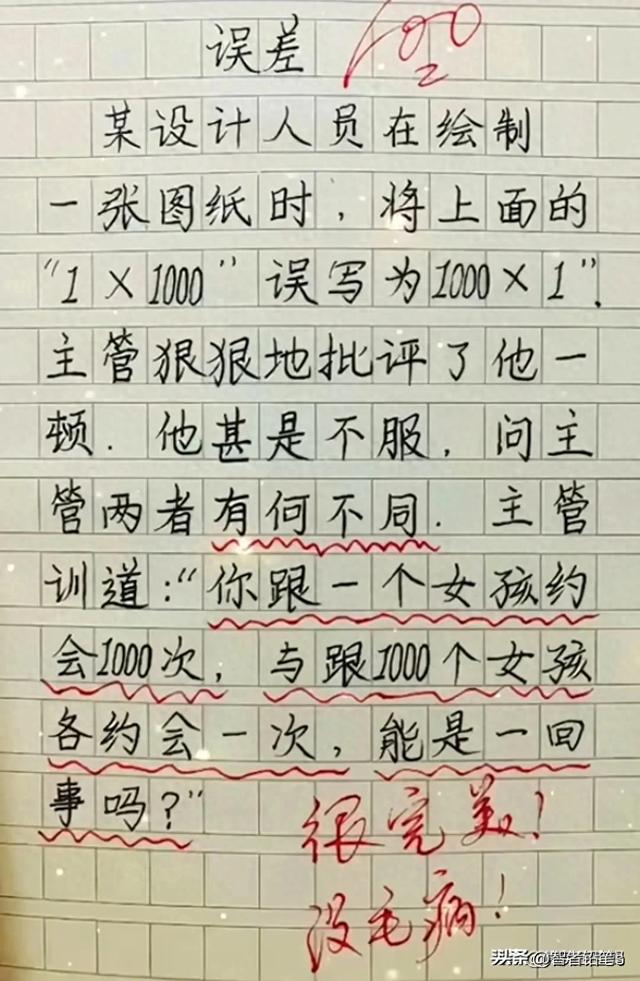 误差
100
某设计人员在绘制
一张图纸时，将上面的
“1×1000”误写为1000×1”.
主管狠狠地批评了他一
顿．他甚是不服，问主
管两者有何不同．主管
训道：“你跟一个女孩约
会1000次，与跟1000个女孩
各约会一次，能是一回
事吗？”
很完美！
没毛病！
头条@智者铅笔